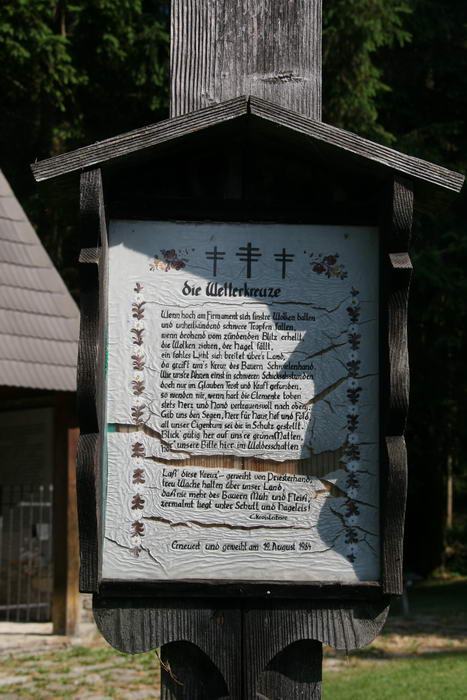 die Wetterkreuze
Wenn hoch am Firmament sich finstre Wolken ballen
und unheilkündend schwere Tropfen fallen,
wenn drohend vom zündenden Blitz erhellt
die Wolken ziehen, der Hagel fällt,
ein fahles Licht sich breitet über's Land,
da greift um's Kreuz des Bauern Schwielenhand.
Wie unsre Ahnen einst in schweren Schicksalsstunden
doch nur im Glauben Trost und Kraft gefunden,
so wenden wir, wenn hart die Elemente toben
stets Herz und Hand vertrauensvoll nach oben:
Gib uns den Segen, Herr für Haus, Hof und Feld
all unser Eigentum sei die in Schutz gestellt.
Blick gütig her auf uns're grünen Matten,
hör' unsere Bitte hier im Waldesschatten
Laß' diese Kreuz'- geweiht von Priesterhand,
treu Wache halten über unser Land,
daß nie mehr des Bauern Müh und Fleiß,
zermalmt liegt unter Schutt und Hageleis!
Erneuert und geweiht am 19. August 1984